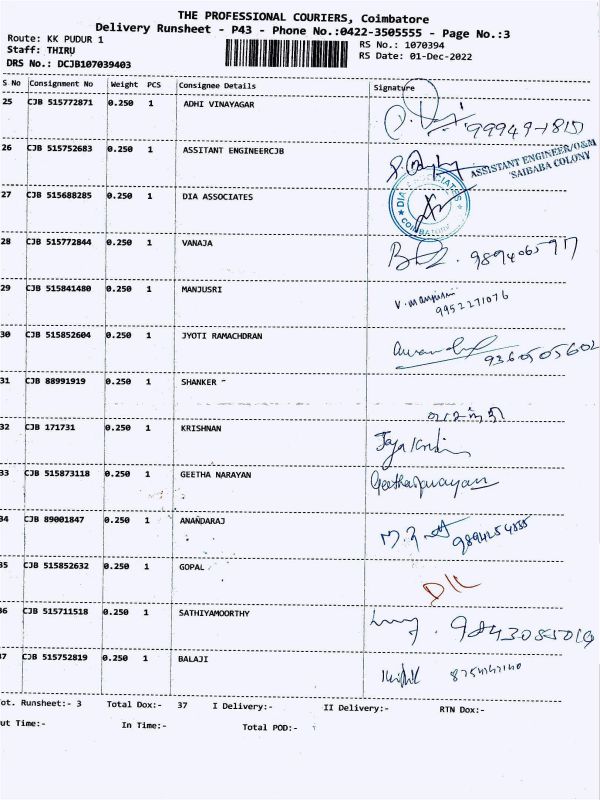 THE PROFESSIONAL COURIERS, Coimbatore
Delivery Runsheet - P43 - Phone No.:0422-3505555 - Page No.:3
Route: KK PUDUR 1
RS No.: 1070394
Staff: THIRU
RS Date: 01-Dec-2022
DRS No.: DCJB107039403
S No Consignment No Weight PCS Consignee Details Signature
25 CJB 515772871 0.250 1 ADHI VINAYAGAR
26 CJB 515752683 0.250 1 ASSITANT ENGINEERCJB
ASSISTANT ENGINEER/O&M
SAIBABA COLONY
27 CJB 515688285 0.250 1 DIA ASSOCIATES
DIA ASSOCIATES
COIMBATORE
28 CJB 515772844 0.250 1 VANAJA
29 CJB 515841480 0.250 1 MANJUSRI
9952271076
30 CJB 515852604 0.250 1 JYOTI RAMACHDRAN
9360505602
31 CJB 88991919 0.250 1 SHANKER
32 CJB 171731 0.250 1 KRISHNAN
33 CJB 515873118 0.250 1 GEETHA NARAYAN
Geetha Narayan
34 CJB 89001847 0.250 1 ANANDARAJ
35 CJB 515852632 0.250 1 GOPAL
36 CJB 515711518 0.250 1 SATHIYAMOORTHY
9843085019
37 CJB 515752819 0.250 1 BALAJI
ot. Runsheet:- 3 Total Dox:- 37 I Delivery:- II Delivery:- RTN Dox:-
ut Time:- In Time:- Total POD:-